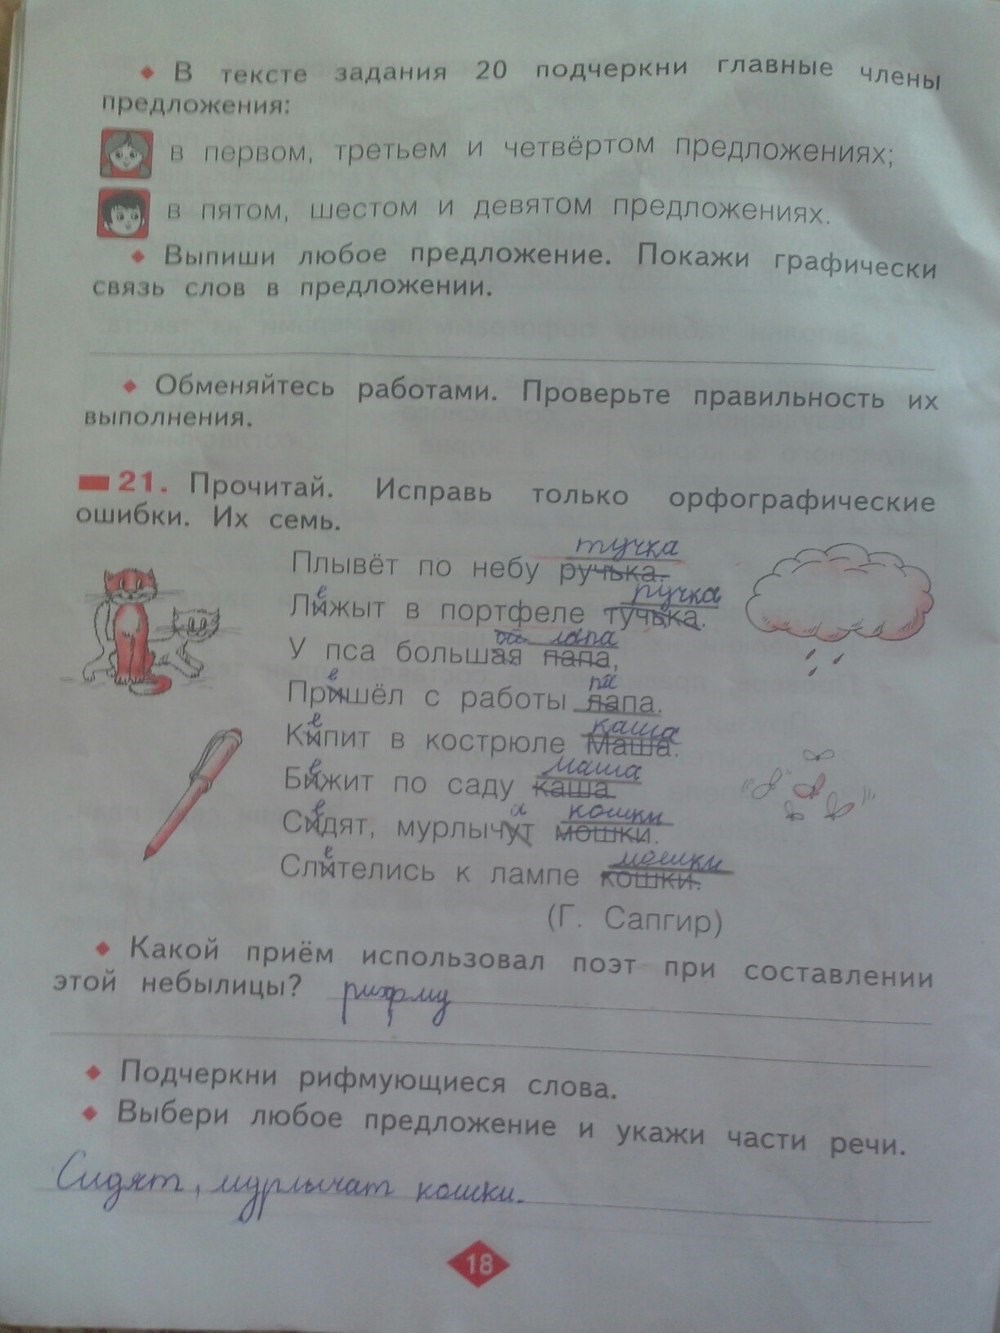 ♦ В тексте задания 20 подчеркни главные члены
предложения:
в первом, третьем и четвёртом предложениях;
в пятом, шестом и девятом предложениях.
♦ Выпиши любое предложение. Покажи графически
связь слов в предложении.
♦ Обменяйтесь работами. Проверьте правильность их
выполнения.
21. Прочитай. Исправь только орфографические
ошибки. Их семь.
тучка
Плывёт по небу ручька.
е ручка
Лижыт в портфеле тучька.
лапа
У пса большая папа,
е па
Пришёл с работы лапа.
е каша
Кипит в кострюле Маша.
е маша
Бижит по саду каша.
е а кошки
Сидят, мурлычут мошки.
е мошки
Слителись к лампе кошки.
(Г. Сапгир)
♦ Какой приём использовал поэт при составлении
этой небылицы? рифму
♦ Подчеркни рифмующиеся слова.
♦ Выбери любое предложение и укажи части речи.
Сидят, мурлычат кошки.
18